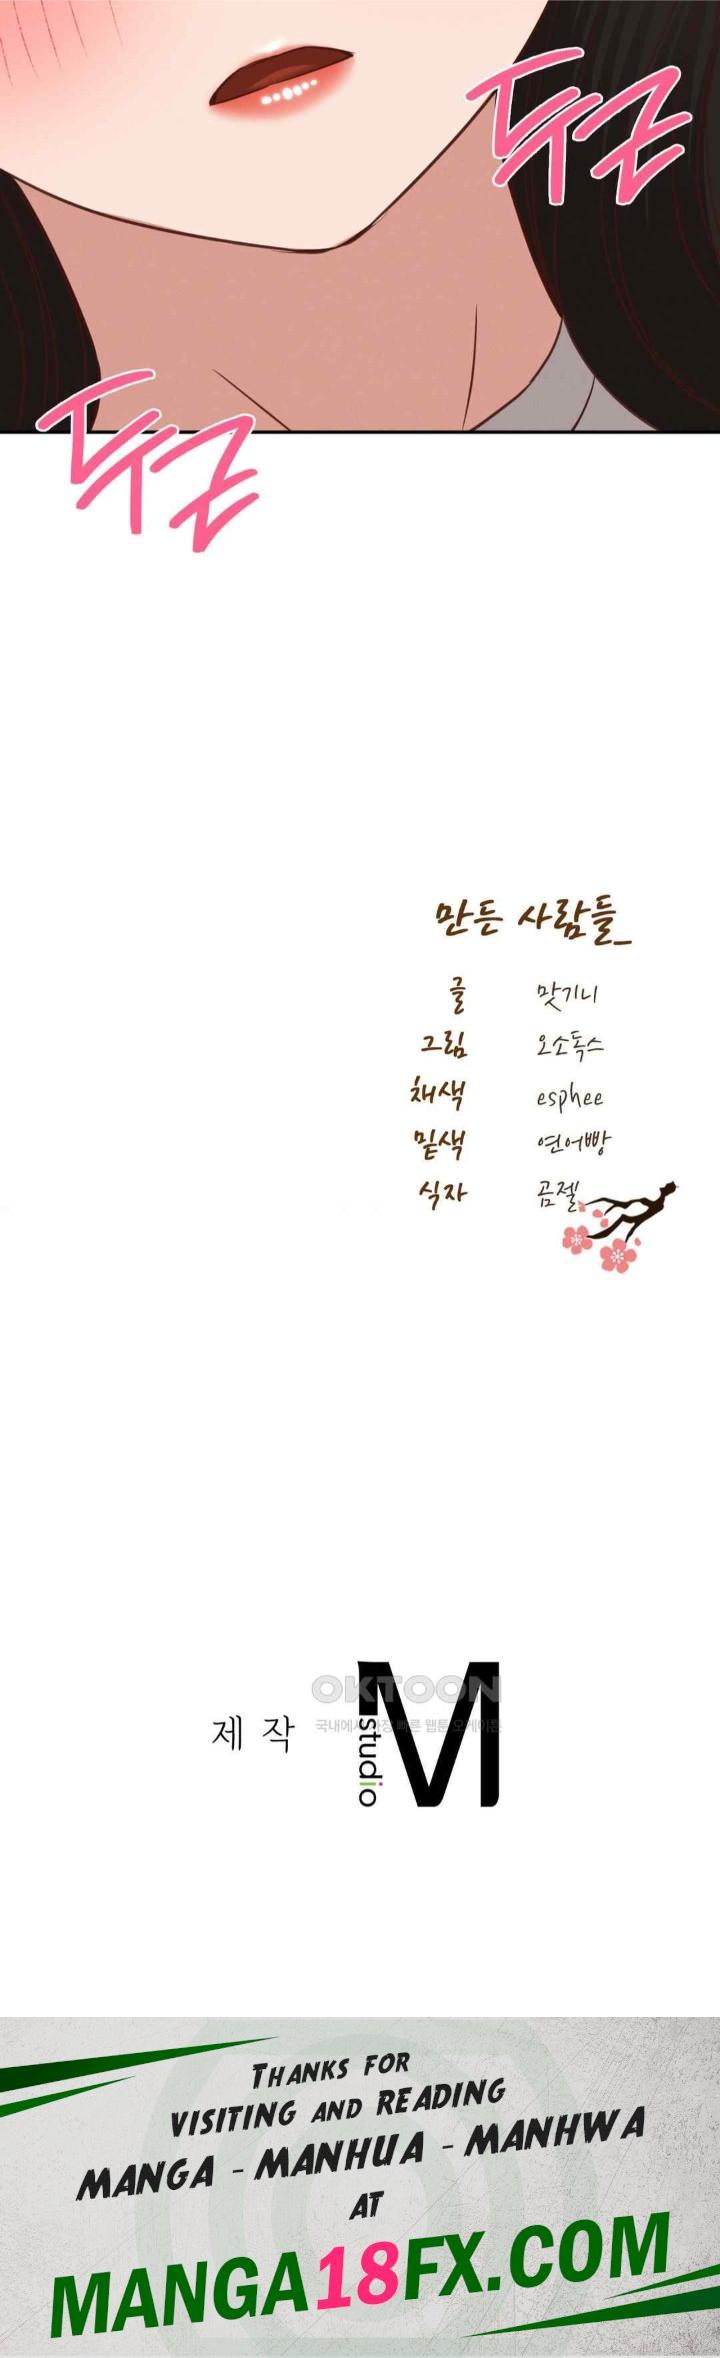 두근
두근
만든 사람들_
글 맛기니
그림 오소독스
채색 esphee
밑색 연어빵
식자 곰젤
OKTOON
국내에서 가장 빠른 웹툰 오케이툰
제 작
M
studio
THANKS FOR
VISITING AND READING
MANGA - MANHUA - MANHWA
AT
MANGA18FX.COM